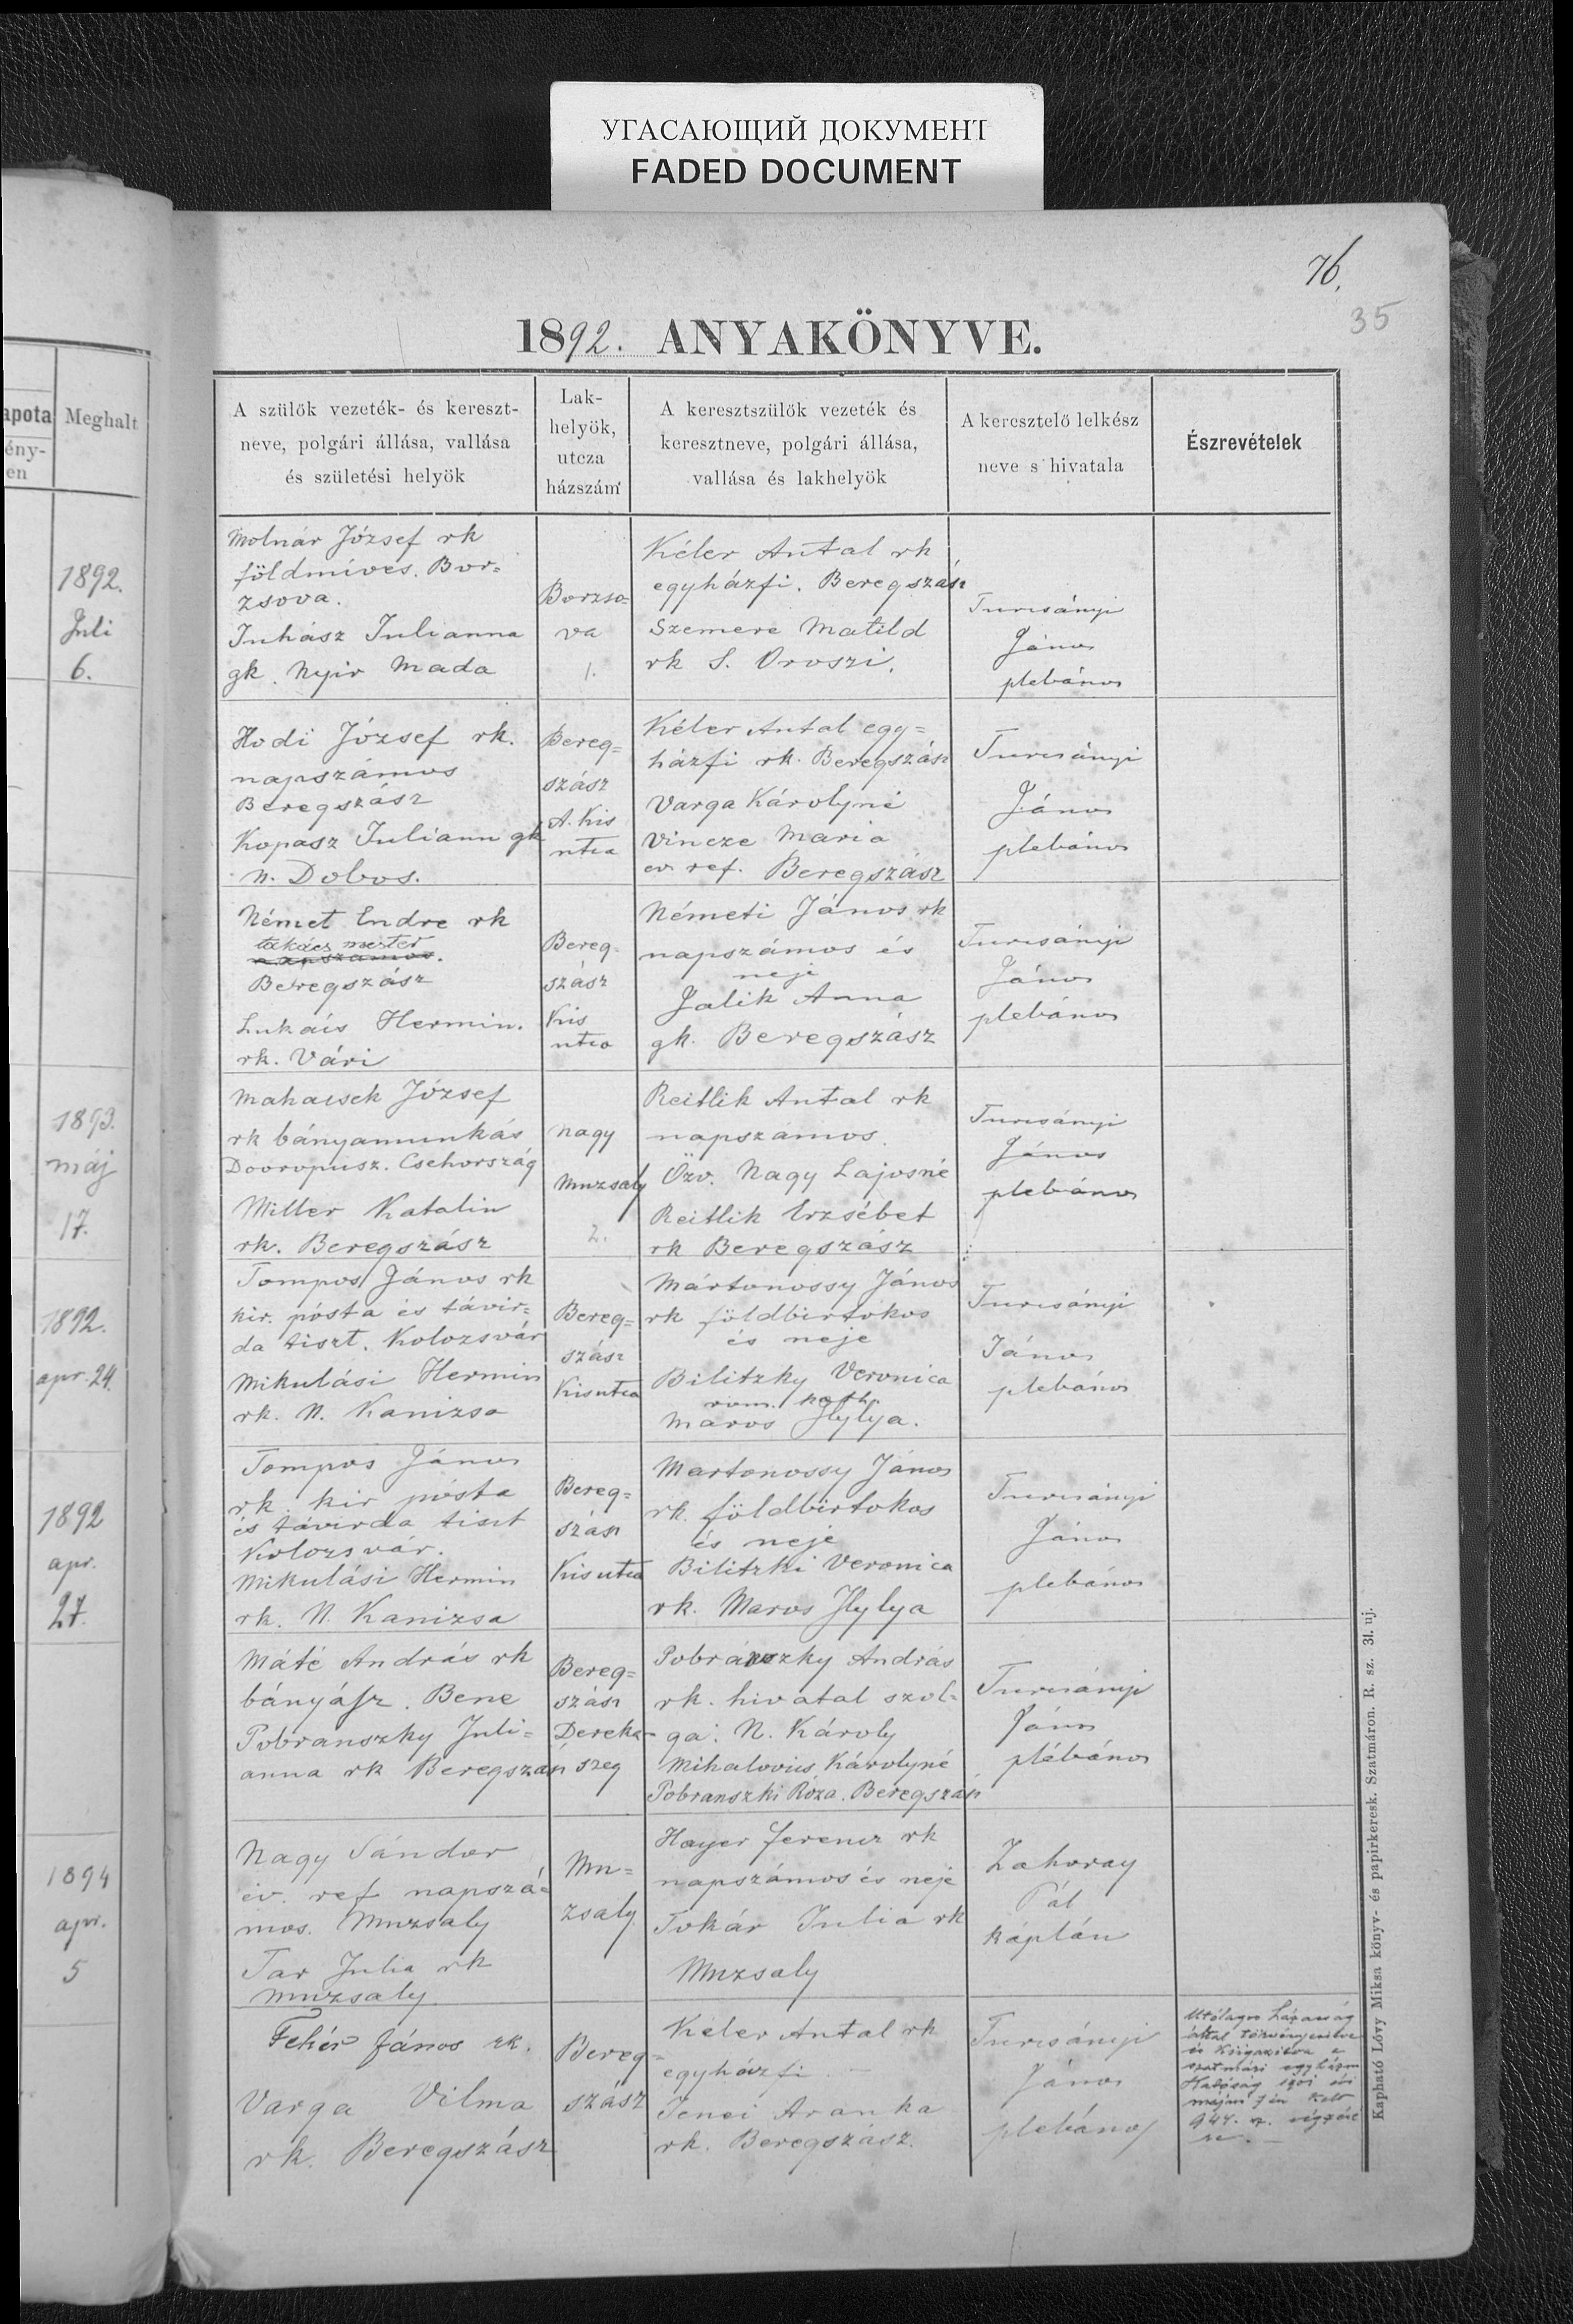 УГАСАЮЩИЙ ДОКУМЕНТ
FADED DOCUMENT
76.
35
1892. ANYAKÖNYVE.
apota
Meghalt
ény-
en
A szülők vezeték- és kereszt-
neve, polgári állása, vallása
és születési helyök
Lak-
helyök,
utcza
házszám
A keresztszülők vezeték és
keresztneve, polgári állása,
vallása és lakhelyök
A keresztelő lelkész
neve s hivatala
Észrevételek
1892.
Juli
6.
Molnár József rk
földmíves. Bor-
zsova.
Juhász Julianna
gk. Nyir Mada
Borzso-
va
1.
Kéler Antal rk
egyházfi. Beregszász
Szemere Matild
rk S. Oroszi.
Turcsányi
János
plebános
Hodi József rk.
napszámos
Beregszász
Kopasz Juliann gk
N. Dobos.
Bereg=
szász
A. Kis
utca
Kéler Antal egy=
házfi rk. Beregszász
Varga Károlyné
Vincze Maria
ev ref. Beregszász
Turcsányi
János
plebános
Német Endre rk
takács mester
napszamos.
Beregszász
Lukács Hermin.
rk. Vári
Bereg-
szász
Kis
utca
Németi János rk
napszámos és
neje
Jalik Anna
gk. Beregszász
Turcsányi
János
plebános
1893.
máj
17.
Mahacsek József
rk bányamunkás
Dooropusz. Csehország
Miller Katalin
rk. Beregszász
Nagy
Muzsaly
2.
Reitlik Antal rk
napszámos.
Özv. Nagy Lajosné
Reitlik Erzsébet
rk Beregszász
Turcsányi
János
plebános
1892.
apr. 24.
Tompos János rk
kir. pósta és távir=
da tiszt. Kolozsvár
Mikulási Hermin
rk. N. Kanizsa
Bereg=
szász
Kisutca
Mártonossy János
rk földbirtokos
és neje
Bilitzky Veronica
rom. kath.
Maros Illye.
Turcsányi
János
plebános
1892
apr.
27.
Tompos János
rk. kir pósta
és távirda tiszt
Kolozsvár.
Mikulási Hermin
rk. N. Kanizsa
Bereg=
szász
Kisutca
Martonossy János
rk. földbirtokos
és neje
Bilitzki Veronica
rk. Maros
Turcsányi
János
plebános
Máté András rk
bányász. Bene
Pobranszky Juli=
anna rk Beregszász
Bereg=
szász
Dereka-
szeg
Pobránszky András
rk. hivatal szol-
ga. N. Károly
Mihalovics Károlyné
Pobranszki Róza. Beregszász
Turcsányi
János
plébános
1894
apr.
5
Nagy Sándor
ev. ref napszá=
mos. Muzsaly
Tar Julia rk
Muzsaly
Mu=
zsaly
Hayer Ferencz rk
napszámos és neje
Tokár Julia rk
Muzsaly
Zahoray
Pál
káplán
Fehér János rk.
Varga Vilma
rk. Beregszász
Bereg=
szász
Kéler Antal rk
egyházfi
Jenei Aranka
rk. Beregszász.
Turcsányi
János
plebános
Utólagos házasság
által törvényesítve
és kiigazítva a
szatmári egyházm
Hatóság évi
május kelt
944. sz. végzésé
re.
Kapható Lővy Miksa könyv- és papirkeresk. Szatmáron. R. sz. 31. uj.